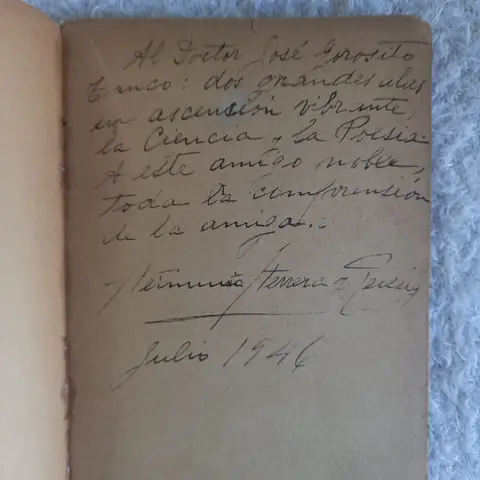 Al Doctor José Gorosito
Tanco: dos grandes alas
en ascención vibrante,
la Ciencia y la Poesía.
A este amigo noble,
toda la comprensión
de la amiga.
Herminia Herrera y Reissig
Julio 1946